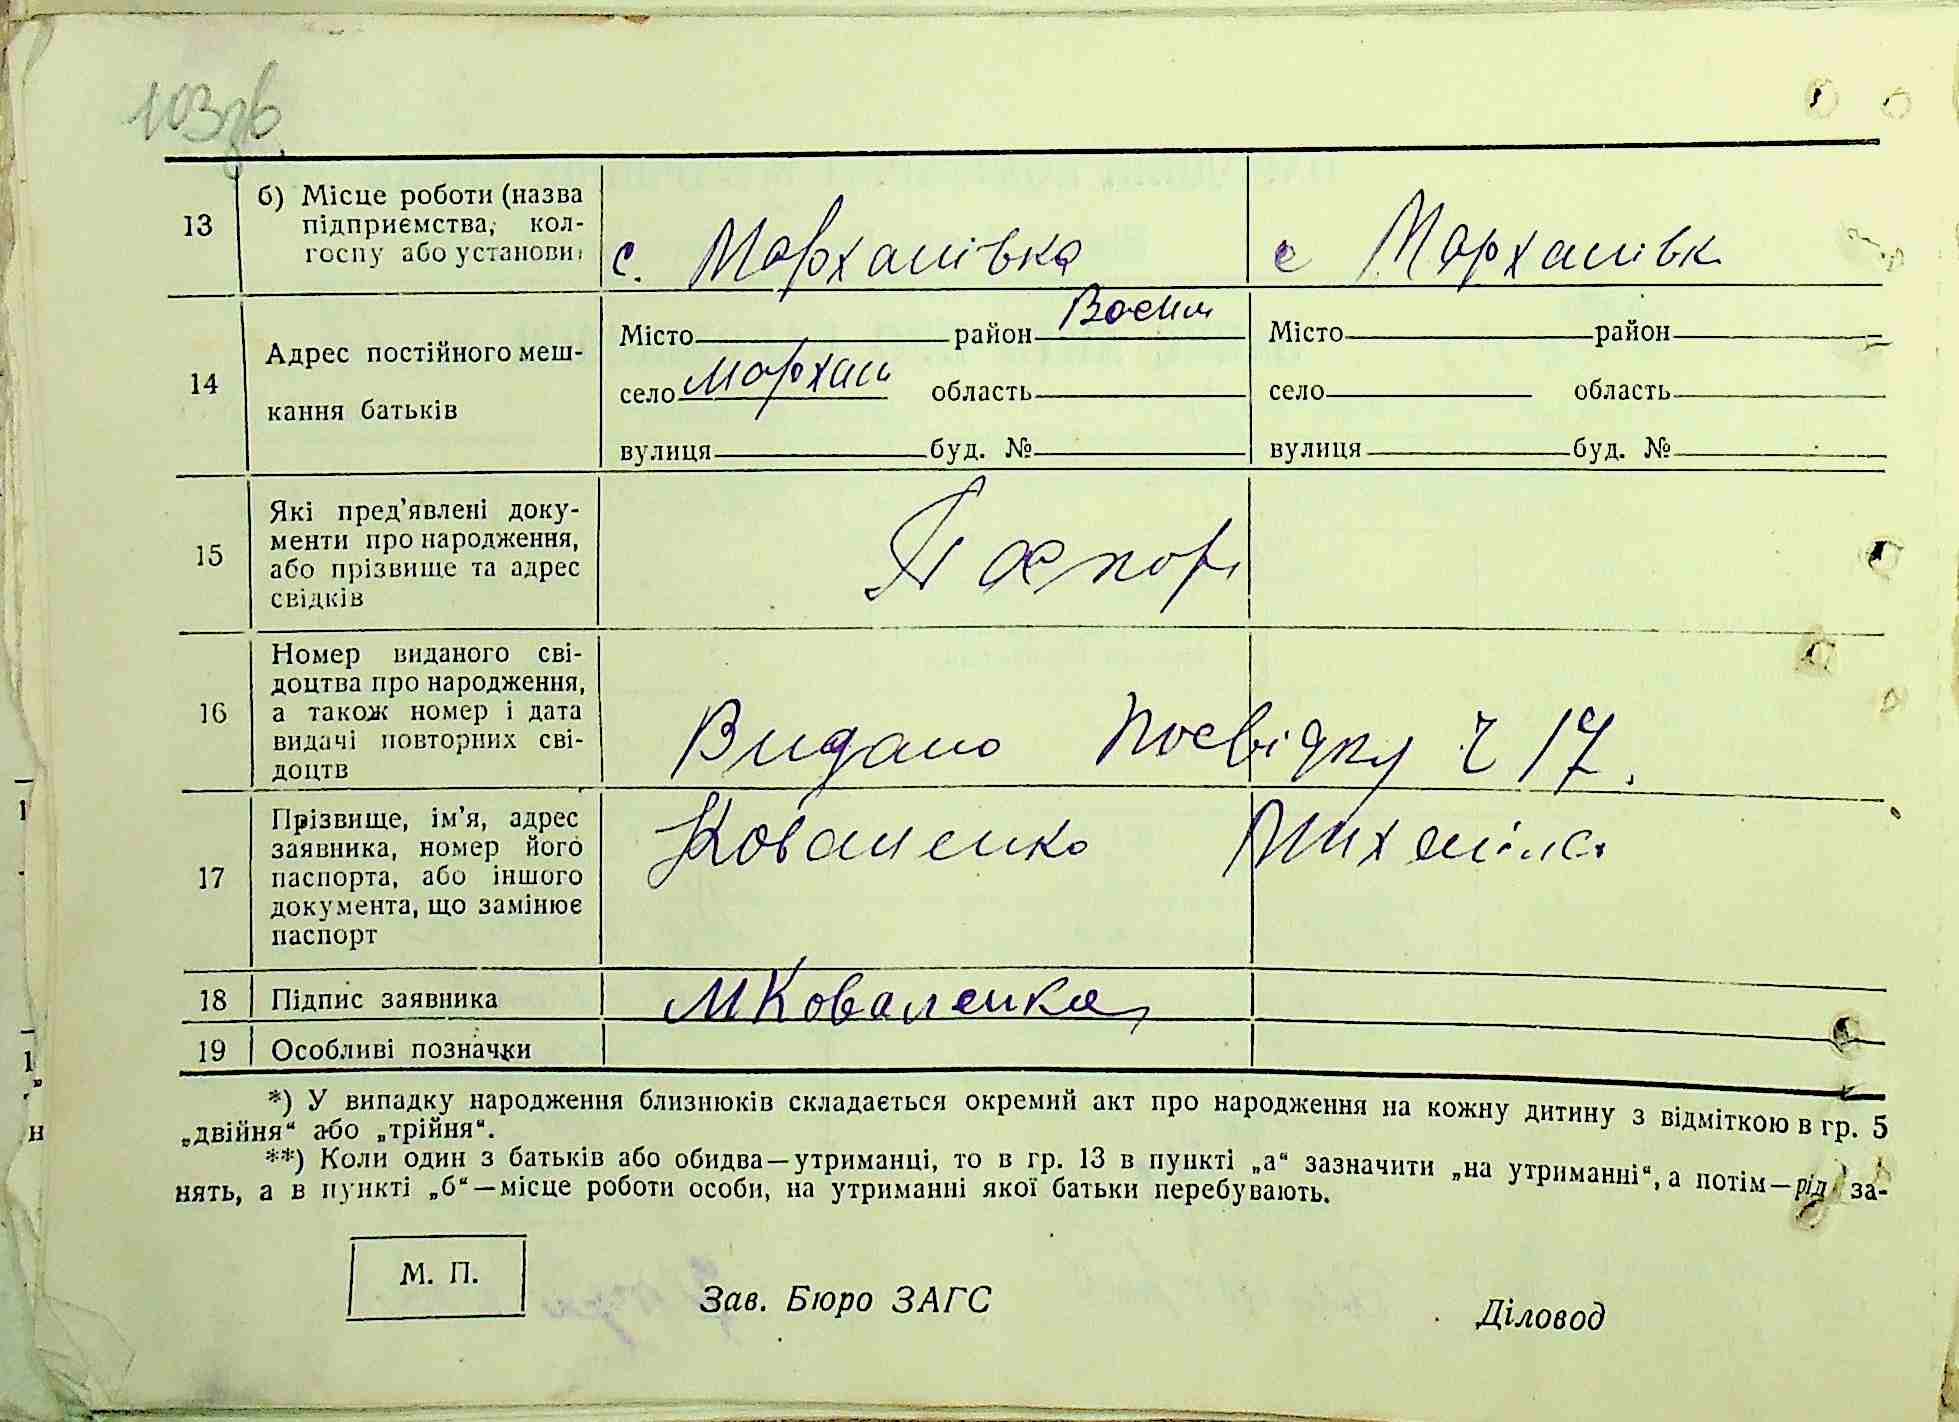 103зв
13
б) Місце роботи (назва
підприємства, кол-
госпу або установи)
с. Мархалівка
с Мархалівк
14
Адрес постійного меш-
кання батьків
Місто район Васил
село Мархал область
вулиця буд. №
Місто район
село область
вулиця буд. №
15
Які пред’явлені доку-
менти про народження,
або прізвище та адрес
свідків
Паспор
16
Номер виданого сві-
доцтва про народження,
а також номер і дата
видачі повторних сві-
доцтв
Видано посвідку ч 17.
17
Прізвище, ім’я, адрес
заявника, номер його
паспорта, або іншого
документа, що замінює
паспорт
Коваленко Михайло
18
Підпис заявника
МКоваленко
19
Особливі позначки
*) У випадку народження близнюків складається окремий акт про народження на кожну дитину з відміткою в гр. 5
„двійня“ або „трійня“.
**) Коли один з батьків або обидва—утриманці, то в гр. 13 в пункті „а“ зазначити „на утриманні“, а потім—рід за-
нять, а в пункті „б“—місце роботи особи, на утриманні якої батьки перебувають.
М. П.
Зав. Бюро ЗАГС
Діловод